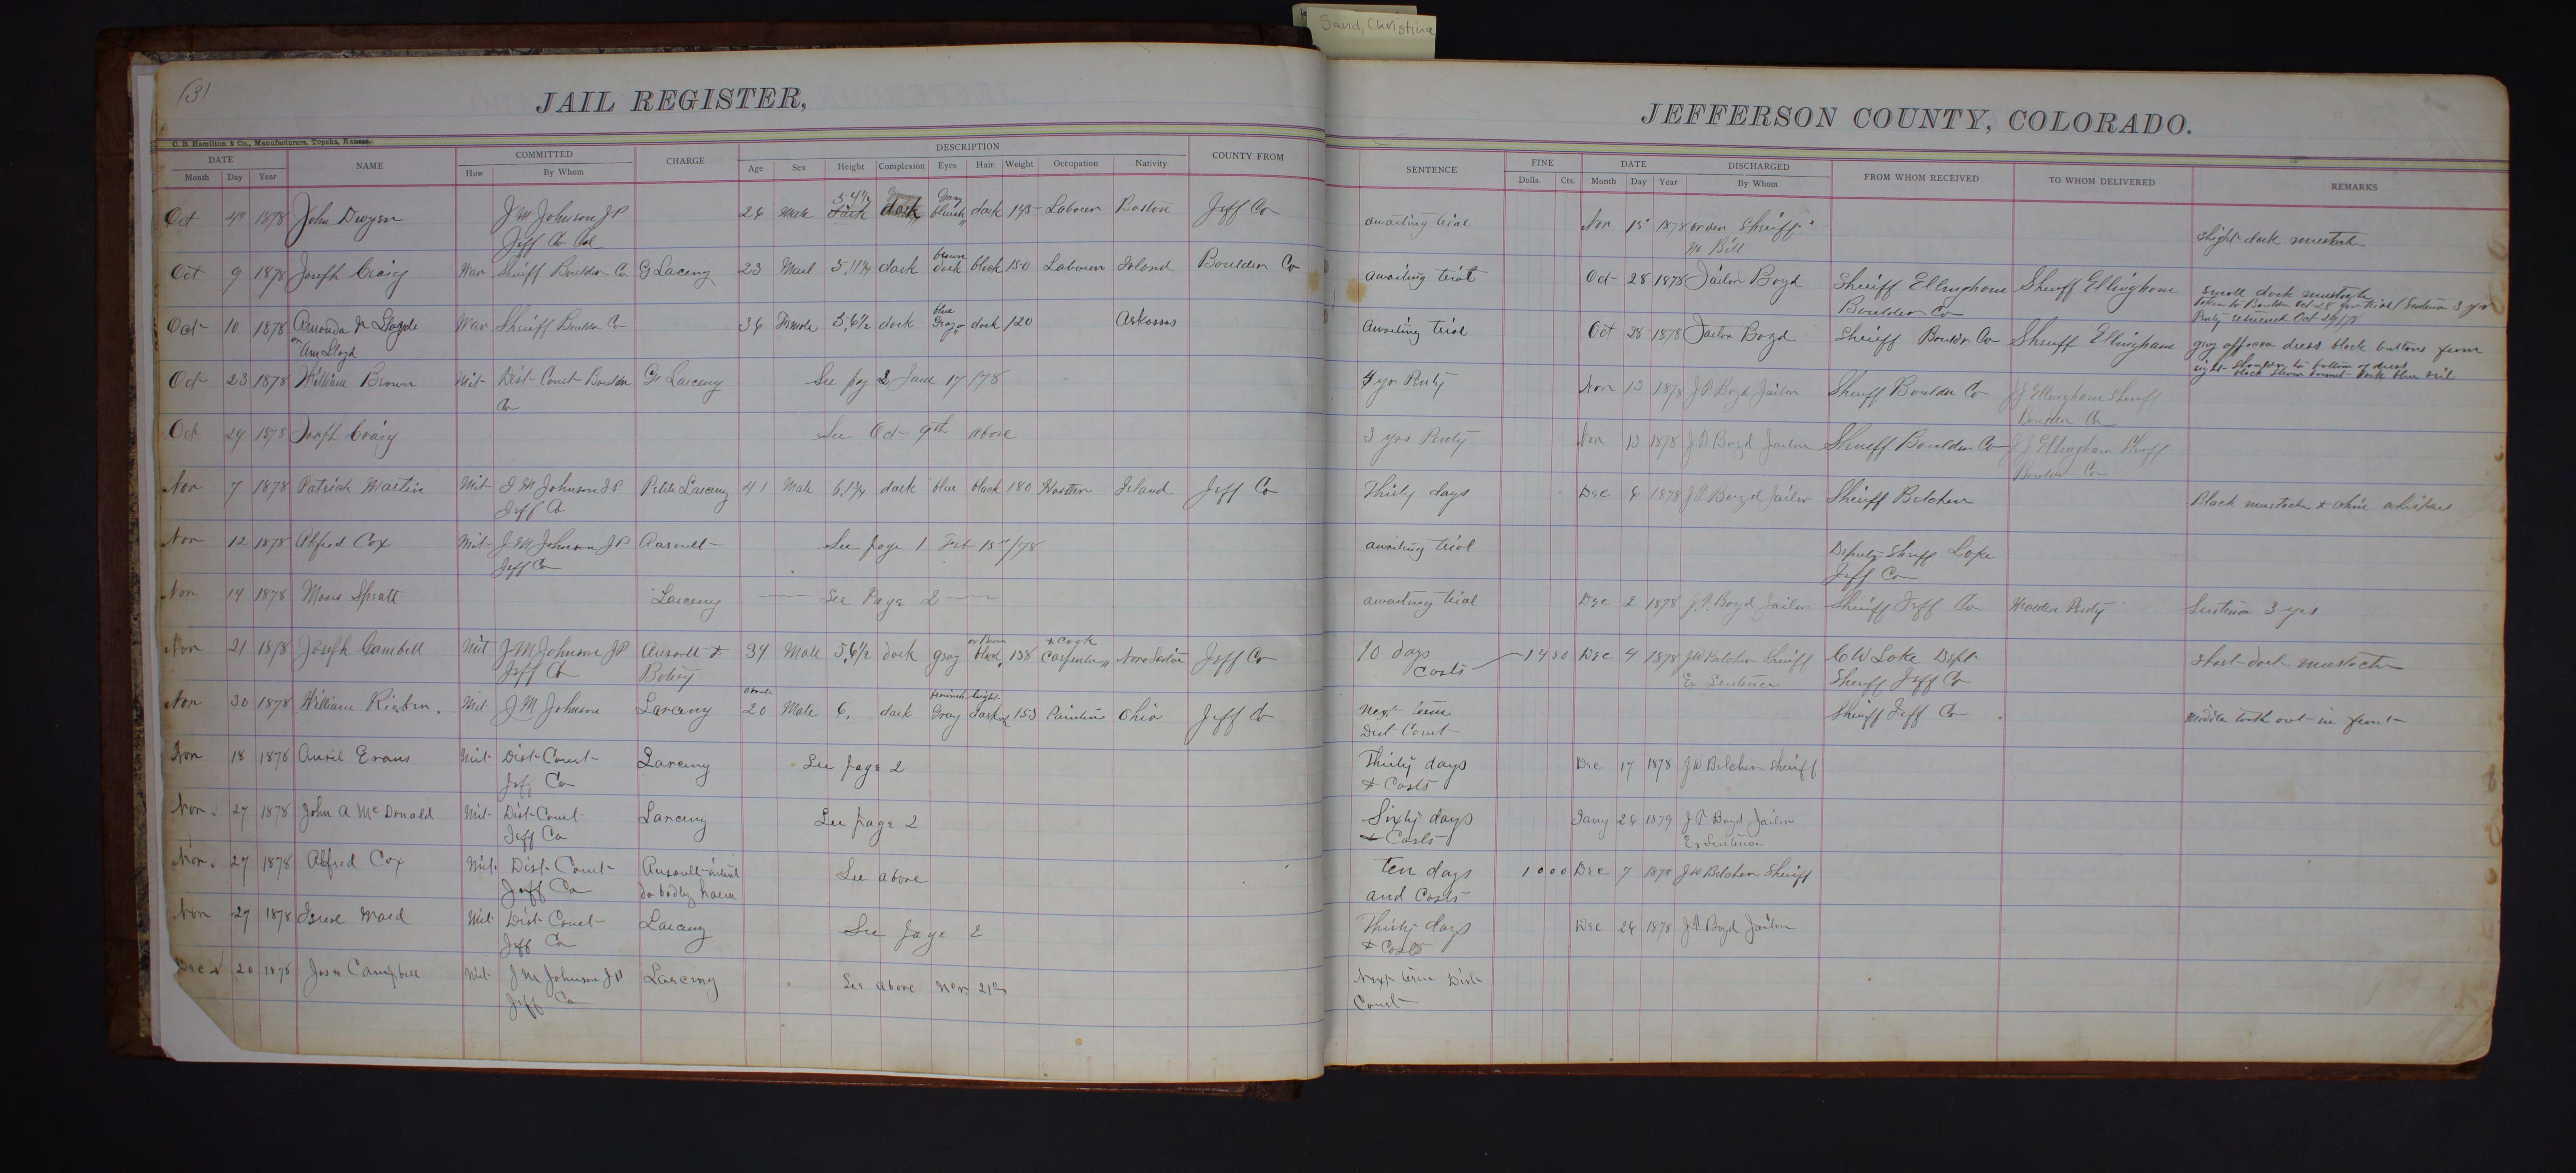 Sand, Christina
(3)
JAIL REGISTER,
JEFFERSON COUNTY, COLORADO.
C. B. Hamilton & Co., Manufacturers, Topeka, Kansas.
DATE NAME COMMITTED CHARGE DESCRIPTION COUNTY FROM SENTENCE FINE DATE DISCHARGED FROM WHOM RECEIVED TO WHOM DELIVERED REMARKS
Month Day Year How By Whom Age Sex Height Complexion Eyes Hair Weight Occupation Nativity Dolls. Cts. Month Day Year By Whom
Oct 4" 1878 John Dwyer J M Johnson J P 26 Male 5,4½ dark Gray dark 145 Laborer Boston Jeff Co awaiting trial Nov 15 1878 order Sheriff slight dark mustach
Jeff Co Col No Bill
Oct 9 1878 Joseph Craig War Sheriff Boulder Co G Laceny 23 Mael 5,11¾ dark brown dark black 150 Laborer Irland Boulder Co awaiting trial Oct 28 1878 Jailor Boyd Sheriff Ellinghane Sheriff Ellinghane small dark mustache
Boulder Co taken to Boulder Oct 28 for trial / Sentence 3 yr
Penty returned Oct 29/78
Oct 10 1878 Amanda N War Sheriff Boulder Co 36 Female 5,6½ dark blue Gray dark 120 Arkansas Awaiting trial Oct 28 1878 Jailor Boyd Sheriff Boulder Co Sheriff Ellinghane gray dress black buttons from
or Ann Lloyd right shoulder to bottom of dress
Oct 23 1878 William Brown Mit Dist Court Boulder Gr Larceny See pag 2 June 17/78 4 yr Penty Nov 13 1878 J P Boyd Jailor Sheriff Boulder Co J J Ellingham Sheriff
Co Boulder Co
Oct 29 1878 Joseph Craig See Oct 9th above 3 yrs Penty Nov 13 1878 J P Boyd Jailor Sheriff Boulder Co J J Ellingham Sheriff
Boulder Co
Nov 7 1878 Patrick Martin Mit J M Johnson J P Petite Larceny 41 Male 6,1¾ dark blue black 180 Irland Jeff Co Thirty days Dec 6 1878 J P Boyd Jailor Sheriff Belcher Black mustache & chin whiskers
Jeff Co
Nov 12 1878 Alfred Cox Mit J M Johnson J P Assault See page 1 Feb 15"/78 awaiting trial Deputy Sheriff Loke
Jeff Co Jeff Co
Nov 14 1878 Moses Spratt Larceny See Page 2 awaiting trial Dec 2 1878 J. P. Boyd Jailor Sheriff Jeff Co Warden Penty Sentence 3 yrs
Nov 21 1878 Joseph Cambell Mit J M Johnson J P Assault & 34 Male 5,6½ dark gray or Brown black 138 & Cook Carpenter Nova Scotia Jeff Co 10 days 14 50 Dec 4 1878 J W Belcher Sheriff C W Loke Dept short dark mustache
Jeff Co Batery Costs Ex Sentence Sheriff Jeff Co
Nov 30 1878 William Mit J M Johnson Larceny about 20 Male 6, dark brownish Gray light dark 153 Painter Ohio Jeff Co Next term Sheriff Jeff Co Middle tooth out in front
Dist Court
Nov 18 1878 Evans Mit Dist Court Larceny See page 2 Thirty days Dec 17 1878 J W Belcher Sheriff
Jeff Co & Costs
Nov. 27 1878 John A McDonald Mit Dist Court Larceny See page 2 Sixty days Jany 26 1879 J P Boyd Jailor
Jeff Co & Costs Ex Sentence
Nov. 27 1878 Alfred Cox Mit. Dist. Court Assault intent See above ten days 10 00 Dec 7 1878 J W Belcher Sheriff
Jeff Co do bodly harm and Costs
Nov 27 1878 Ward Mit Dist Court Larceny See page 2 Thirty days Dec 26 1878 J P Boyd Jailor
Jeff Co & Costs
Dec 20 1878 Jos H Campbell Mit J M Johnson J P Larceny See above Nov. 21" Next term Dist
Jeff Co Court